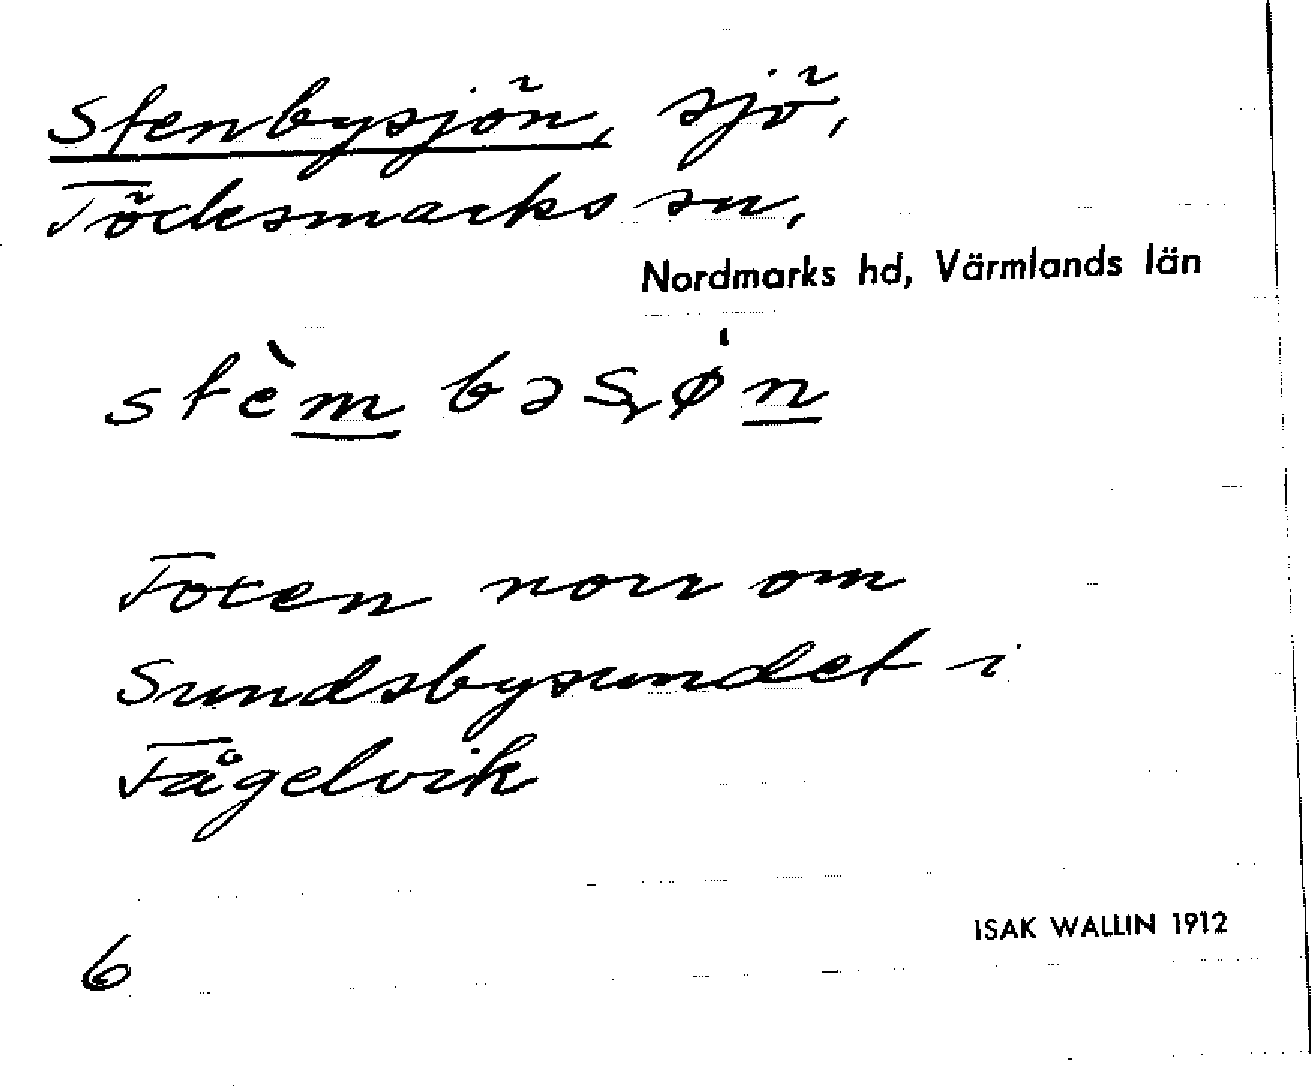 Stenbysjön, sjö,
Töcksmarks sn,
Nordmarks hd, Värmlands län
stèm bəʂøn
Foxen norr om
Sundsbysundet i
Fågelvik
6
ISAK WALLIN 1912